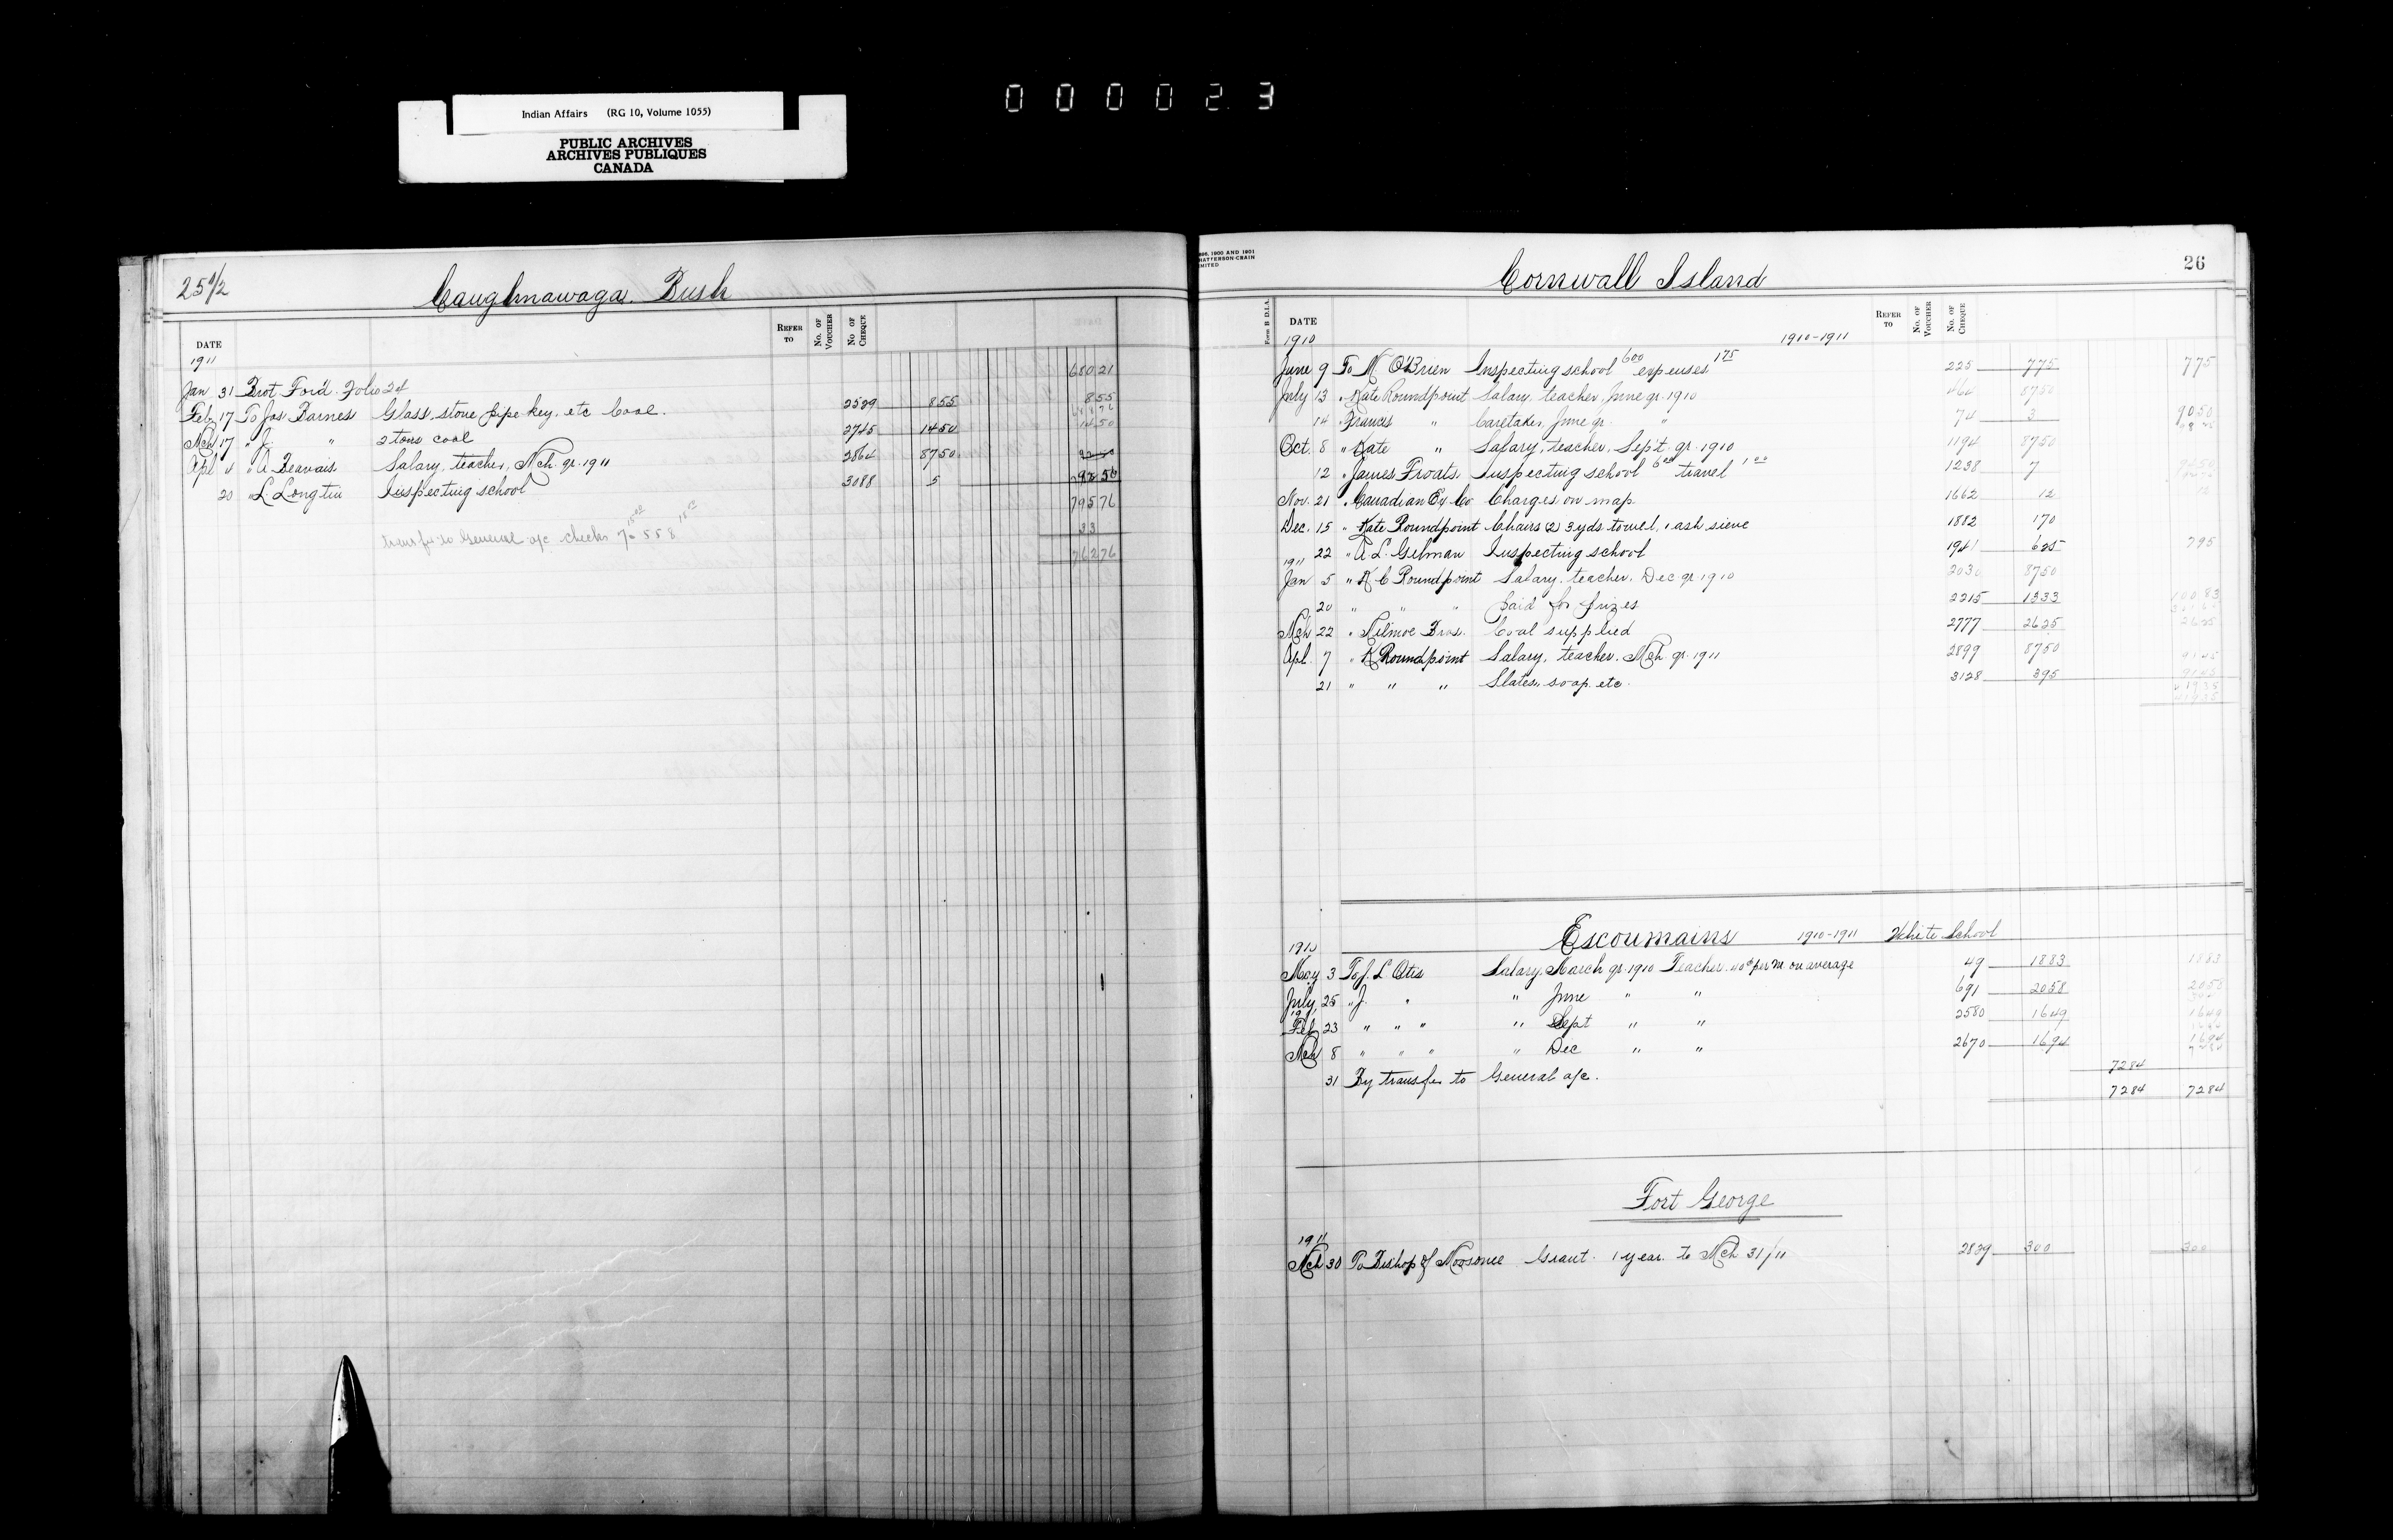 000023
Indian Affairs (RG 10, Volume 1055)
PUBLIC ARCHIVES
ARCHIVES PUBLIQUES
CANADA
25 1/2
Caughnawaga Bush
DATE REFER TO No. OF VOUCHER No OF CHEQUE
1911
Jan 31 Brot Ford. Folio 24 680 21
Feb 17 To Jas Barnes Glass, stove pipe key, etc Coal. 2529 8 55 8 55
Mch 17 " J. " 2 tons coal 2745 14 50 14 50
Apl 4 " A Beauvais Salary, teacher, Mch. qr. 1911 2864 87 50
20 " L. Longtin Inspecting school 3088 5 92 50
795 76
33
762 76
transfer to General a/c checks
26
Cornwall Island
Form B D.I.A.
DATE REFER TO No. OF VOUCHER No. OF CHEQUE
1910 1910-1911
June 9 To M O'Brien Inspecting school 6 00 expenses 1 75 225 7 75 7 75
July 13 " Kate Roundpoint Salary, teacher, June qr. 1910 87 50
14 " Frances " Caretaker, June qr. " 74 3 90 50
Oct. 8 " Kate " Salary, teacher, Sep't qr. 1910 1194 87 50
12 " James Froats. Inspecting school 6 00 travel 1 00 1238 7
Nov. 21 " Canadian Ex Co Charges on map 1662 12 12
Dec. 15 " Kate Roundpoint Chairs (2) 3 yds towel, 1 ash sieve 1882 1 70
22 " A. L. Gilman Inspecting school 1941 6 25 7 95
1911
Jan 5 " K C Roundpoint Salary, teacher, Dec qr. 1910 2030 87 50
20 " " " Paid for prizes 2215 13 33 100 83
Mch 22 " Kilmoe Bros. Coal supplied 2777 26 25 26 25
Apl. 7 " K Roundpoint Salary, teacher, Mch. qr. 1911 2899 87 50
21 " " " Slates, soap etc. 3128 3 95 91 45
Escoumains 1910-1911 White School
1910
May 3 To J. L Otis Salary, March qr. 1910 Teacher. per M. on average 49 18 83 18 83
July 25 " J. " " June " " 691 20 58 20 58
1911
Feb 23 " " " " Sept " " 2580 16 49 16 49
Mch 8 " " " " Dec " " 2670 16 94 16 94
31 By transfer to General a/c. 72 84
72 84 72 84
Fort George
1911
Mch 30 To Bishop of Moosonee Grant. 1 year. to Mch 31/11 2829 300 300